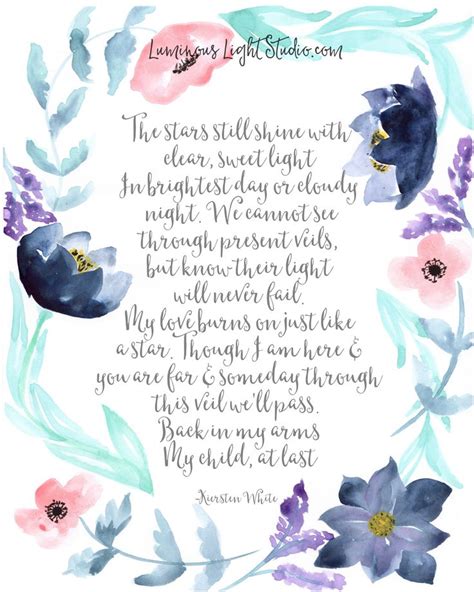 Luminous Light Studio.com
The stars still shine with
clear, sweet light
In brightest day or cloudy
night. We cannot see
through present veils,
but know their light
will never fail.
My love burns on just like
a star. Though I am here &
you are far & someday through
this veil we'll pass.
Back in my arms
My child, at last
-Kiersten White